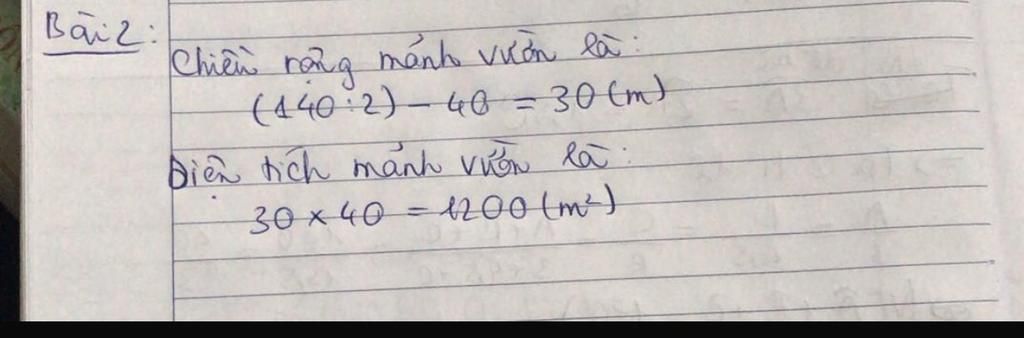 Bài 2:
Chiều rộng mảnh vườn là:
(140:2) - 40 = 30 (m)
Diện tích mảnh vườn là:
30 x 40 = 1200 (m²)